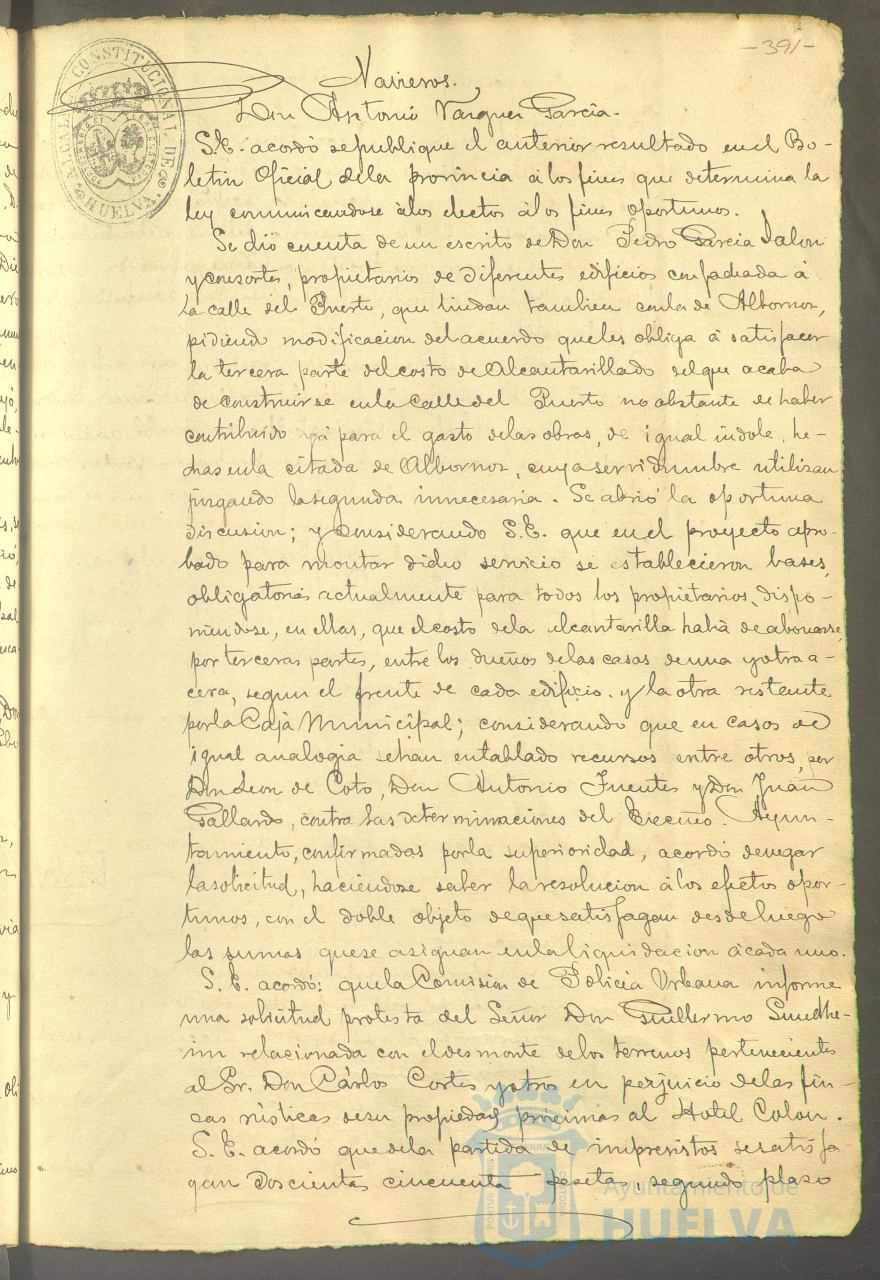 -391-
ALCALDIA CONSTITUCIONAL DE HUELVA
Navieros.
Don Antonio Vazquez Garcia.
S.E. acordó se publique el anterior resultado en el Bo-
letin Oficial de la provincia á los fines que determina la
ley comunicandose á los electos á los fines oportunos.
Se dió cuenta de un escrito de Don Pedro Garcia Jalon
y consortes, propietarios de diferentes edificios con fachada á
la calle del Puerto, que lindan tambien con la de Albornoz,
pidiendo modificacion del acuerdo que les obliga á satisfacer
la tercera parte del costo de Alcantarillado del que acaba
de construirse en la Calle del Puerto no obstante de haber
contribuido yá para el gasto de las obras, de igual indole, he-
chas en la citada de Albornoz, cuya servidumbre utilizan
juzgando la segunda innecesaria. Se abrió la oportuna
discusion; y considerando S.E. que en el proyecto apro-
bado para montar dicho servicio se establecieron bases,
obligatorias actualmente para todos los propietarios, dispo-
niendose, en ellas, que el costo de la alcantarilla habia de abonarse,
por terceras partes, entre los dueños de las casas de una y otra a-
cera, segun el frente de cada edificio. y la otra restante
por la Caja Municipal; considerando que en casos de
igual analogia se han entablado recursos entre otros, por
Don Leon de Coto, Don Antonio Fuentes y Don Juan
Gallardo, contra las determinaciones del Excmo. Ayun-
tamiento, confirmadas por la superioridad, acordó denegar
la solicitud, haciendose saber la resolucion á los efectos opor-
tunos, con el doble objeto de que satisfagan desde luego
las sumas que se asignan en la liquidacion á cada uno.
S.E. acordó: que la Comision de Policia Urbana informe
una solicitud protesta del Señor Don Guillermo Sundhe-
im relacionada con el desmonte de los terrenos pertenecientes
al Sr. Don Cárlos Cortes y otros en perjuicio de las fin-
cas rústicas de su propiedad próximas al Hotel Colon.
S.E. acordó que de la partida de imprevistos se satisfa-
gan Doscientas cincuenta pesetas, segundo plazo
Ayuntamiento de
HUELVA